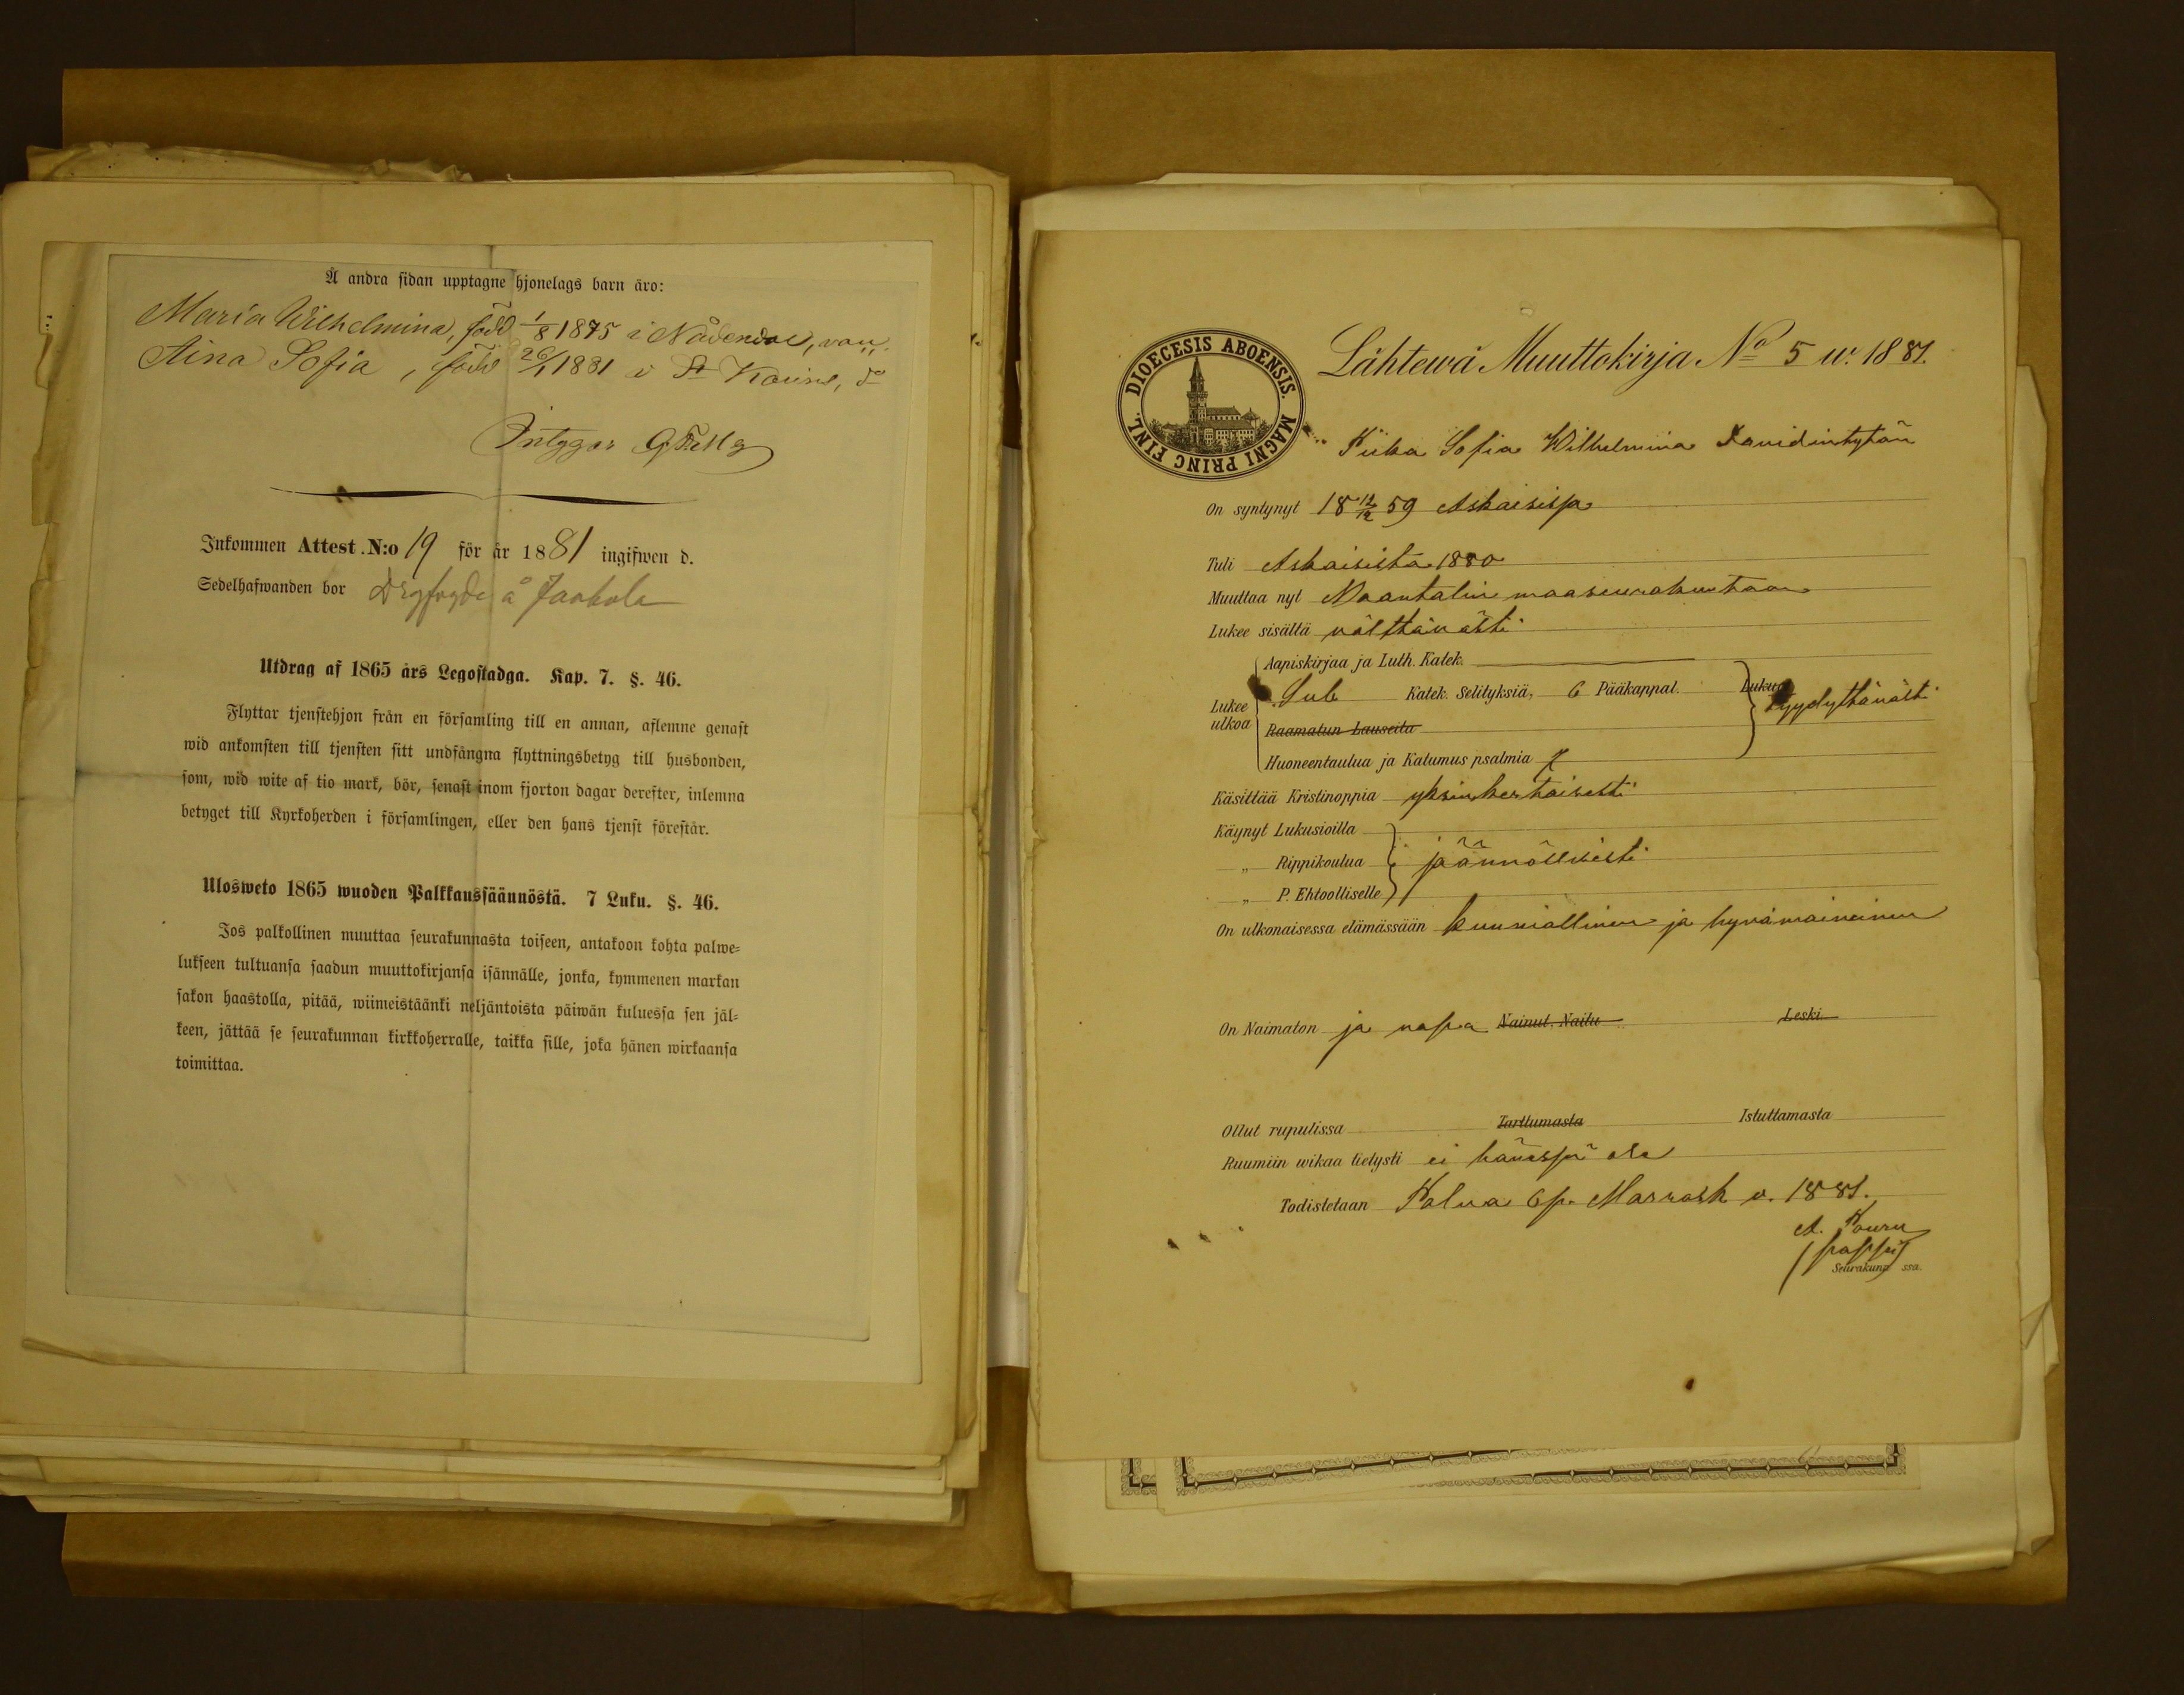 Å andra sidan upptagne hjonelags barn äro:
Maria Wilhelmina, född 1/8 1875 i Nådendal, vacc.
Aina Sofia, född 26/1 1881 i St Karins, do
Intygar
Inkommen Attest. N:o 19 för år 1881 ingifwen d.
Sedelhafwanden bor å Jaakola
Utdrag af 1865 års Legostadga. Kap. 7. §. 46.
Flyttar tjenstehjon från en församling till en annan, aflemne genast
wid ankomsten till tjensten sitt undfångna flyttningsbetyg till husbonden,
som, wid wite af tio mark, bör, senast inom fjorton dagar derefter, inlemna
betyget till Kyrkoherden i församlingen, eller den hans tjenst förestår.
Ulosweto 1865 wuoden Palkkaussäännöstä. 7 Luku. §. 46.
Jos palkollinen muuttaa seurakunnasta toiseen, antakoon kohta palwe=
lukseen tultuansa saadun muuttokirjansa isännälle, jonka, kymmenen markan
sakon haastolla, pitää, wiimeistäänki neljäntoista päiwän kuluessa sen jäl=
keen, jättää se seurakunnan kirkkoherralle, taikka sille, joka hänen wirkaansa
toimittaa.
DIOECESIS ABOENSIS. MAGNI PRINC FINL.
Lähtewä Muuttokirja No 5 w. 1881.
Piika Sofia Wilhelmina Davidintytär
On syntynyt 18 12/12 59 Askaisissa
Tuli Askaisista 1880
Muuttaa nyt Naantalin maaseurakuntaan
Lukee sisältä välttävästi
Aapiskirjaa ja Luth. Katek.
Lukee ulkoa
Katek. Selityksiä, 6 Pääkappal. Lukua tyydyttävästi
Raamatun Lauseita
Huoneentaulua ja Katumus psalmia
Käsittää Kristinoppia yksinkertaisesti
Käynyt Lukusioilla
„ Rippikoulua säännöllisesti
„ P. Ehtoolliselle
On ulkonaisessa elämässään kunniallinen ja hyvämaineinen
On Naimaton ja vapaa Nainut. Naitu Leski
Ollut rupulissa Tarttumasta Istuttamasta
Ruumiin wikaa tietysti ei hänessä ole
Todistetaan 6 p. Marrask v. 1881.
A. Kouru
Seurakunn ssa.